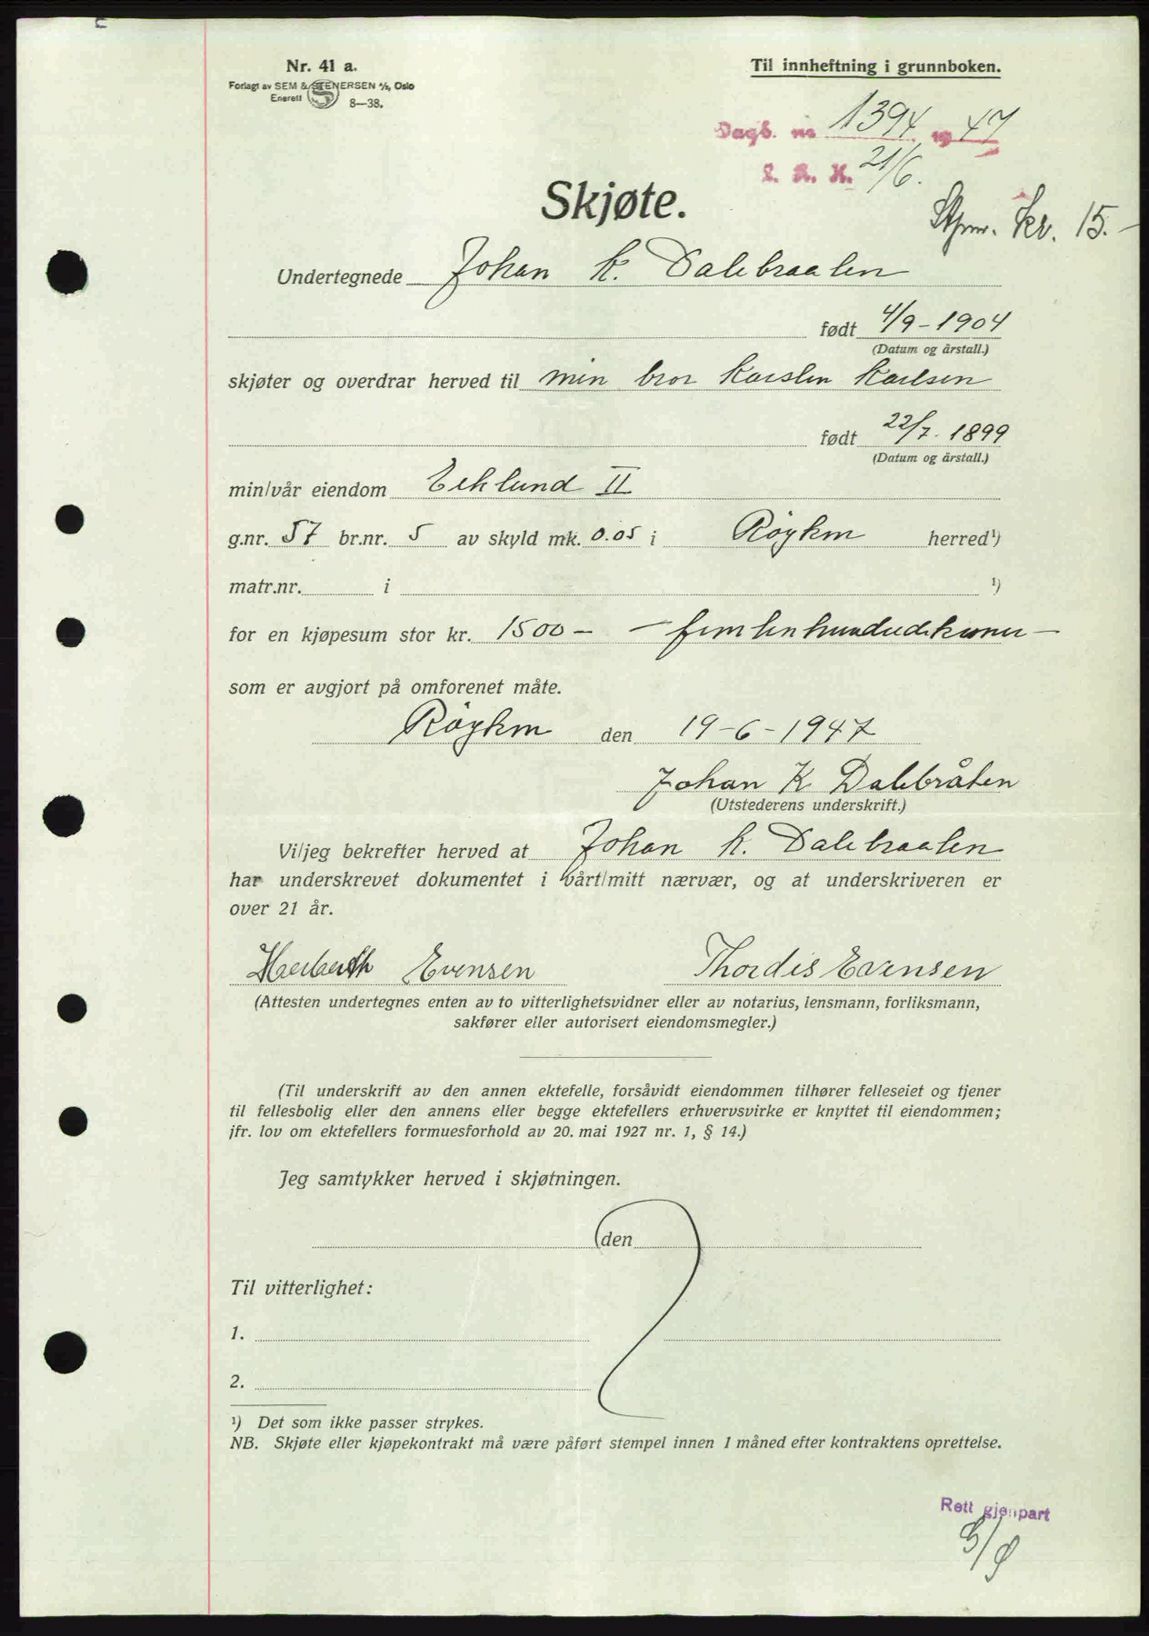 Nr. 41 a.
Forlagt av SEM & STENERSEN A/S, Oslo
Enerett 8—38.
Til innheftning i grunnboken.
Dagb. nr 1394 19 47
21/6.
Stpm. Kr. 15.-
Skjøte.
Undertegnede Johan K. Dalebraaten
født 4/9-1904
(Datum og årstall.)
skjøter og overdrar herved til min bror Karsten Karlsen
født 22/7. 1899
(Datum og årstall.)
min/vår eiendom Eklund II
g.nr. 57 br.nr. 5 av skyld mk. 0.05 i Røyken herred ¹)
matr.nr. i ¹)
for en kjøpesum stor kr. 1500 - - femtenhundredekroner -
som er avgjort på omforenet måte.
Røyken den 19-6-1947
Johan K Dalebråten
(Utstederens underskrift.)
Vi/jeg bekrefter herved at Johan K. Dalebraaten
har underskrevet dokumentet i vårt/mitt nærvær, og at underskriveren er
over 21 år.
Herberth Evensen Thordis Evensen
(Attesten undertegnes enten av to vitterlighetsvidner eller av notarius, lensmann, forliksmann,
sakfører eller autorisert eiendomsmegler.)
(Til underskrift av den annen ektefelle, forsåvidt eiendommen tilhører felleseiet og tjener
til fellesbolig eller den annens eller begge ektefellers erhvervsvirke er knyttet til eiendommen;
jfr. lov om ektefellers formuesforhold av 20. mai 1927 nr. 1, § 14.)
Jeg samtykker herved i skjøtningen.
den
Til vitterlighet:
1.
2.
¹) Det som ikke passer strykes.
NB. Skjøte eller kjøpekontrakt må være påført stempel innen 1 måned efter kontraktens oprettelse.
Rett gjenpart